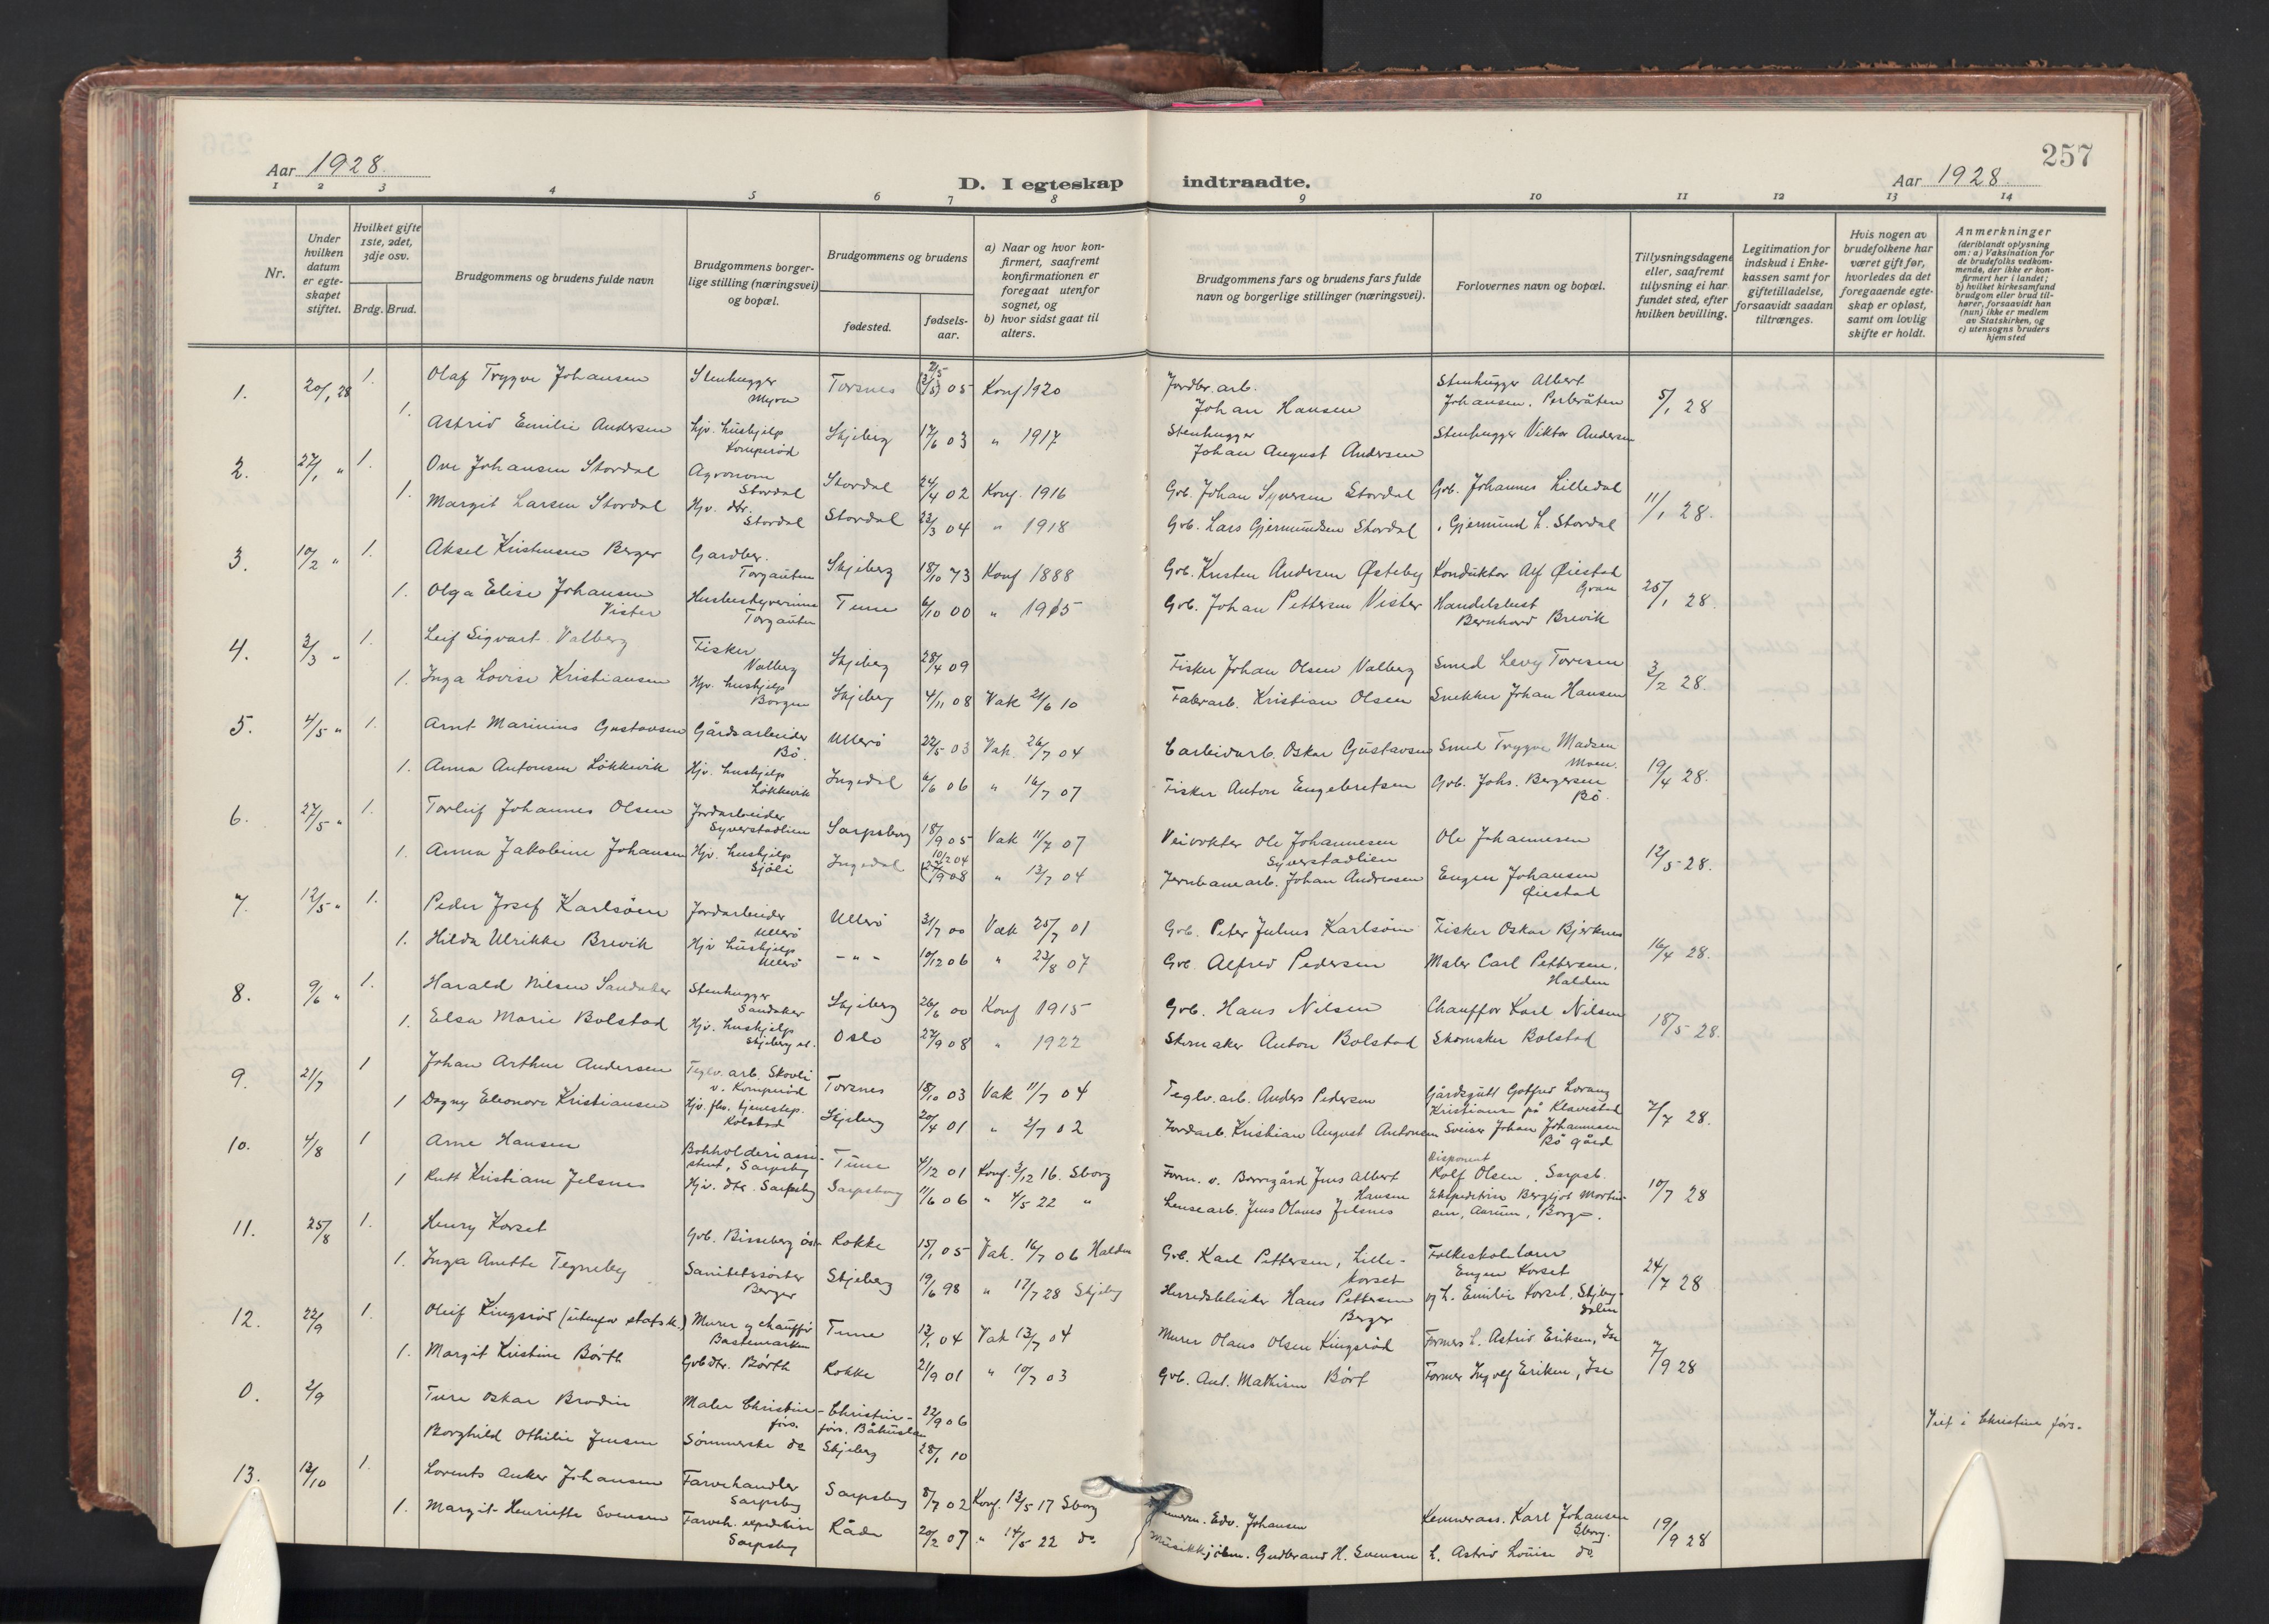 257
Aar 1928.
D. I egteskap indtraadte.
Aar 1928
1 2 3 4 5 6 7 8 9 10 11 12 13 14
Nr.
Under hvilken datum er egteskapet stiftet.
Hvilket gifte 1ste, 2det, 3dje osv.
Brdg. Brud.
Brudgommens og brudens fulde navn
Brudgommens borgerlige stilling (næringsvei) og bopæl.
Brudgommens og brudens
fødested.
fødselsaar.
a) Naar og hvor konfirmert, saafremt konfirmationen er foregaat utenfor sognet, og
b) hvor sidst gaat til alters.
Brudgommens fars og brudens fars fulde navn og borgerlige stillinger (næringsvei).
Forlovernes navn og bopæl.
Tillysningsdagene eller, saafremt tillysning ei har fundet sted, efter hvilken bevilling.
Legitimation for indskud i Enkekassen samt for giftetilladelse, forsaavidt saadan tiltrænges.
Hvis nogen av brudefolkene har været gift før, hvorledes da det foregaaende egteskap er opløst, samt om lovlig skifte er holdt.
Anmerkninger
(deriblandt oplysning om: a) Vaksination for de brudefolks vedkommende, der ikke er konfirmert her i landet;
b) hvilket kirkesamfund brudgom eller brud tilhører, forsaavidt han (hun) ikke er medlem av Statskirken, og
c) utensogns bruders hjemsted
1. 20/1 28 1. Olaf Trygve Johansen Stenhugger Myren Torsnes 05 Konf 1920 Jordbr. arb. Johan Hansen Stenhugger Albert Johansen, 5/1 28
1. Astrid Emilie Andersen hjv. hushjelp Kornperød Skjeberg 17/6 03 " 1917 Stenhugger Johan August Andersen Stenhugger Viktor Andersen
2. 27/1 " 1. Ove Johansen Stordal Agronom Stordal Stordal 24/4 02 Konf. 1916 Gvb. Johan Syversen Stordal Gvb. Johannes Lilledal 11/1 28.
1. Margit Larsen Stordal Hjv. dtr. Stordal Stordal 23/3 04 " 1918 Gvb. Lars Gjermundsen Stordal " Gjermund L. Stordal
3. 10/2 " 1. Aksel Kristensen Berger Gardbr. Torgauten Skjeberg 18/10 73 Konf 1888 Gvb. Kristen Andersen Østeby Konduktør Alf Øiestad Gran 25/1 28.
1. Olga Elise Johansen Vister Husbestyrerinne Torgauten Tune 6/10 00 " 1915 Gvb. Johan Pettersen Vister Handelsbest Bernhard Brevik
4. 3/3 " 1. Leif Sigvart Valberg Fisker Valberg Skjeberg 28/4 09 Fisker Johan Olsen Valberg Smed Levy Toresen 3/2 28.
1. Inga Lovise Kristiansen Hjv. hushjelp Borgen Skjeberg 4/11 08 Vak 21/6 10 Fabrarb. Kristian Olsen Snekker Johan Hansen
5. 4/5 " 1. Arnt Marinius Gustavsen Gårdsarbeider Bø. Ullerø 22/5 03 Vak. 26/7 04 Carbidarb. Oskar Gustavsen Smed Trygve Madsen Moen. 19/4 28.
1. Anna Antonsen Løkkevik Hjv. hushjelp Løkkevik Ingedal 6/6 06 " 16/7 07 Fisker Anton Engebretsen Gvb. Johs. Bergersen Bø.
6. 27/5 " 1. Torleif Johannes Olsen Jordarbeider Syverstadlien Sarpsborg 18/9 05 Vak 11/7 07 Veivokter Ole Johannesen Syverstadlien Ole Johannesen 12/5 28.
1. Anna Jakobine Johansen Hjv. hushjelp Sjøli Ingedal 10/2 04 (27/9 08 " 13/7 04 Jernbanearb. Johan Andreasen Eugen Johansen Øiestad
7. 12/5 " 1. Peder Josef Karlsøen Jordarbeider Ullerø Ullerø 31/7 00 Vak 25/7 01 Gvb. Peter Julius Karlsøen Fisker Oskar Bjerknes 16/4 28.
1. Hilda Ulrikke Brevik Hjv hushjelp Ullerø - " - 10/12 06 " 23/8 07 Gvb. Alfred Pedersen Maler Carl Pettersen, Halden
8. 9/6 " 1. Harald Nilsen Sandaker Stenhugger Sandaker Skjeberg 26/6 00 Konf 1915 Gvb. Hans Nilsen Chauffør Karl Nilsen 18/5 28.
1. Elsa Marie Bolstad Hjv. hushjelp Skjeberg st. Oslo 27/9 08 " 1922 Skomaker Anton Bolstad Skomaker Bolstad
9. 21/7 1 Johan Arthur Andersen Teglv. arb. Skovli v. Kornperød Torsnes 18/10 03 Vak 11/7 04 Teglv. arb. Anders Pedersen Gårdsgutt Gotfred Lorang Kristiansen på Klavestad 7/7 28.
1 Dagny Eleonore Kristiansen Hjv. fhv. tjenestep. Kolstad Skjeberg 20/4 01 " 2/7 02 Jordarb. Kristian August Antonsen Sveiser Johan Johannesen Bø gård
10. 4/8 1 Arne Hansen Bokholderiassistent, Sarpsbg Tune 4/12 01 Konf. 3/12 16. Sborg Form. v. Borregård Jens Albert Hansen Disponent Rolf Olsen, Sarpsb. 10/7 28
1 Rutt Kristiane Jelsnes Hjv. dtr. Sarpsbg Sarpsborg 11/6 06 " 4/5 22 " Lensearb. Jens Olaves Jelsnes Ekspeditrise Bergljot Mortinsen, Aarum, Borge.
11. 25/8 1. Henry Korset Gvb. Bisseberg øst Rokke 15/1 05 Vak. 16/7 06 Halden Gvb. Karl Pettersen, Lillekorset Folkeskolelærer Eugen Korset 24/7 28
1. Inga Anette Tegneby Sanitetssøster Berger Skjeberg 19/6 98 " 17/7 28 Skjebg Hans Pettersen Berger og h. Emilie Korset, Skjebergdalen
12. 22/9 1. Oleif Kingsrød (utenfor statsk.) Murer og chauffør Bastemarken Tune 12/1 04 Vak 13/7 04 Murer Olaus Olsen Kingsrød Formers h. Astrid Eriksen, Ise 7/9 28
1. Margit Kristine Børth Gvbdtr. Børth Rokke 21/9 01 " 10/7 03 Gvb. Ant. Mathisen Børt Former Ingolf Eriksen, Ise
0. 2/9 Ture Oskar Brodin Maler Christinefors. Christinefors. Båhuslen 22/9 06 Viet i Christinefors.
Borghild Othilie Jensen Sømmerske do Skjeberg 28/1 10
13. 13/10 1. Lorents Anker Johansen Farvehandler Sarpsbg Sarpsborg 8/7 02 Konf. 13/5 17 Sborg Edv. Johansen Kemnerass. Karl Johansen Sborg. 19/9 28
1. Margit Henriette Svensen Farveh. expeditrise Sarpsbg Råde 20/2 07 " 14/5 22 do. Gudbrand H. Svensen h. Astrid Louise do.